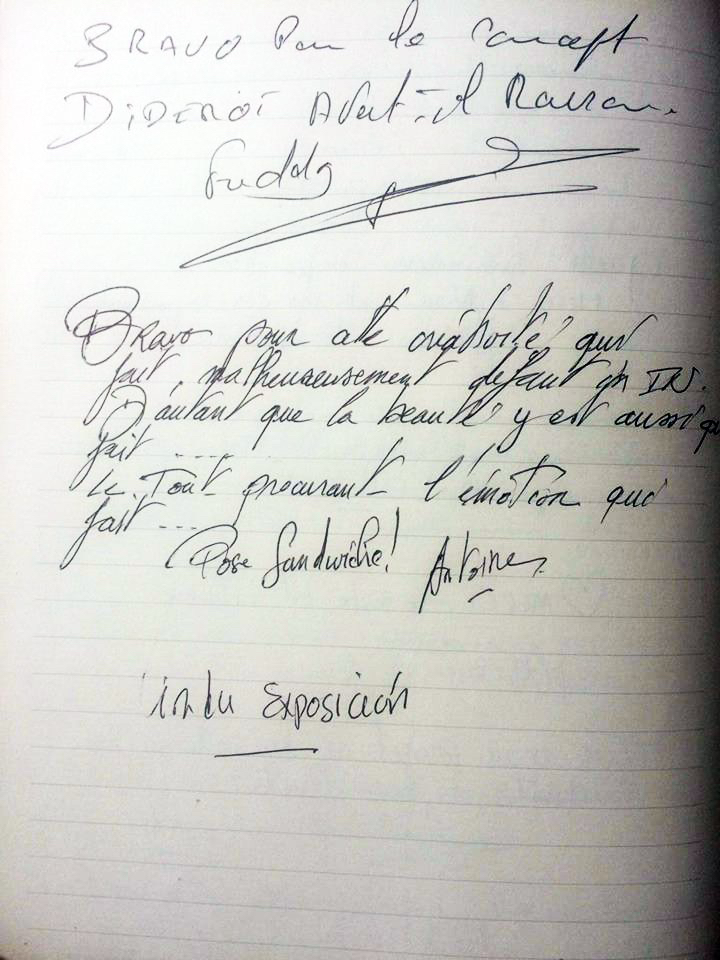 BRAVO Pour le Concept
DIDEROT Avait-il Raison.
Freddy
Bravo pour cette créativité qui
fait, malheureusement défaut en IN.
D'autant que la beauté y est aussi qui
fait ....
Le Tout procurant l'émotion qui
fait ....
Pose Sandwiche! Antoine
linda Exposición